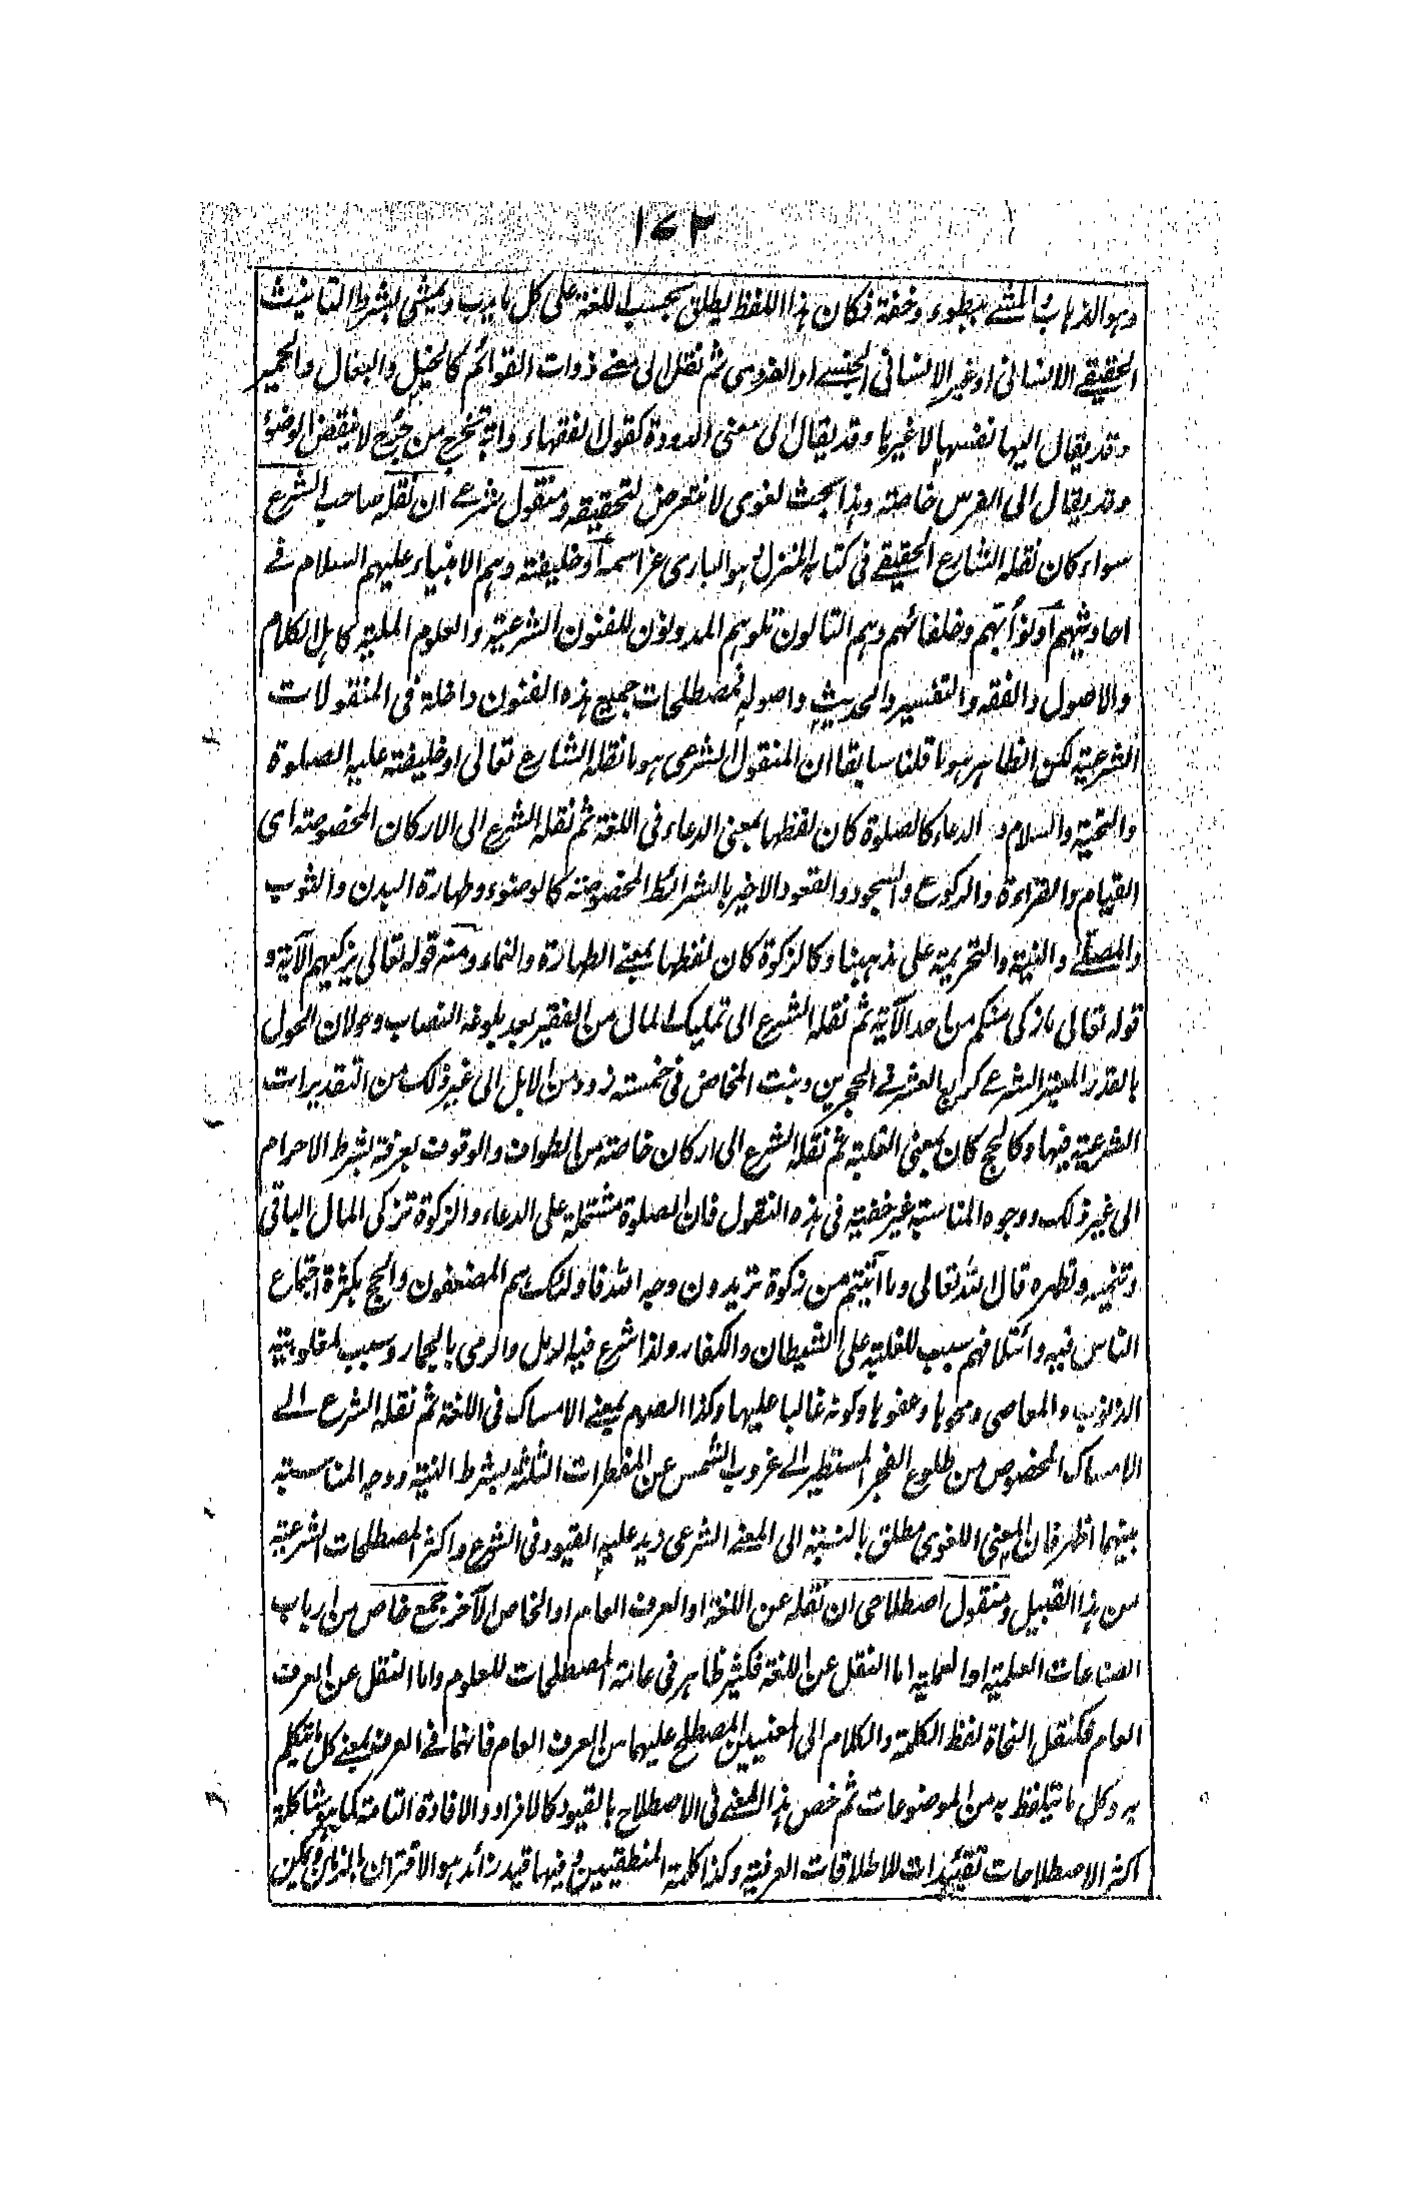 ١٧٢
وهو الذهاب المشي ببطوء وخفة فكان هذا اللفظ يطلق بحسب اللغة على كل ما يدب ويمشى بشرط التانيث
الحقيقي الانسانى او غير الانسانى الجنسي او الفردى ثم نقل الى معنے ذوات القوائم كالخيل والبغال والحمير
وقد يقال اليها نفسها لا غيرها وقد يقال الى معنى الدودة كقول الفقهاء دابة تخرج من جرح لا ينقض الوضوء
وقد يقال الى الفرس خاصة وهذا بحث لغوى لا نتعرض لتحقيقه ومنقول شرعے ان نقله صاحب الشرع
سواء كان نقله الشارع الحقيقے فى كتابه المنزل هو البارى عز اسمه او خليفته وهم الانبياء عليهم السلام فے
احاديثهم او نوابهم وخلفائهم وهم التالون تلوهم المدونون للفنون الشرعية والعلوم الملية كاهل الكلام
والاصول والفقه والتفسير والحديث واصوله فمصطلحات جميع هذه الفنون داخلة فى المنقولات
الشرعية لكن الظاهر هو ما قلنا سابقا ان المنقول الشرعى هو ما نقله الشارع تعالى او خليفته عليه الصلوة
والتحية والسلام و الدعاء كالصلوة كان لفظها بمعنى الدعاء فى اللغة ثم نقله الشرع الى الاركان المخصوصة اى
القيام والقراءة والركوع والسجود والقعود الاخير بالشرائط المخصوصة كالوضوء وطهارة البدن والثوب
والمصلے والنية والتحريمة على مذهبنا وكالزكوة كان لفظها بمعنے الطهارة والنماء ومنه قوله تعالى يزكيهم الآية و
قوله تعالى ما زكى منكم من احد الآية ثم نقله الشرع الى تمليك المال من الفقير بعد بلوغه النصاب وحولان الحول
بالقدر المعتبر الشرعے كربع العشر فے الحجرين وبنت المخاض فى خمسة ذود من الابل الى غير ذلك من التقديرات
الشرعية فيها وكالحج كان بمعنى الغلبة ثم نقله الشرع الى اركان خاصة من الطواف والوقوف بعرفة بشرط الاحرام
الى غير ذلك ووجوه المناسبة غير خفية فى هذه النقول فان الصلوة مشتملة على الدعاء والزكوة تزكى المال الباقى
وتنميه وتطهره قال الله تعالى وما آتيتم من زكوة تريدون وجه الله فاولئك هم المضعفون والحج بكثرة اجتماع
الناس فيه وائتلافهم سبب للغلبة على الشيطان والكفار ولذا شرع فيه الرمل والرمى بالجمار وسبب لمغلوبية
الذنوب والمعاصى ومحوها وعفوها وكونه غالبا عليها وكذا الصوم بمعنے الامساك فى اللغة ثم نقله الشرع الے
الامساك المخصوص من طلوع الفجر المستطير الے غروب الشمس عن المفطرات الثلثة بشرط النية ووجه المناسبة
بينهما اظهر فان المعنى اللغوى مطلق بالنسبة الى المعنے الشرعى زيد عليه القيود فى الشرع واكثر المصطلحات الشرعية
من هذا القبيل ومنقول اصطلاحى ان نقله عن اللغة او العرف العام او الخاص الآخر جمع خاص من ارباب
الصناعات العلمية او العملية اما النقل عن اللغة فكثير ظاهر فى عامة المصطلحات للعلوم واما النقل عن العرف
العام فكنقل النحاة لفظ الكلمة والكلام الى المعنيين المصطلح عليهما من العرف العام فانهما فے العرف بمعنے كل ما يتكلم
به وكل ما يتلفظ به من الموضوعات ثم خص هذا المعنے فى الاصطلاح بالقيود كالافراد والافادة التامة كما هو شاكلة
اكثر الاصطلاحات تقييدات للاطلاقات العرفية وكذا كلمة المنطقيين فيها قيد زائد هو الاقتران بالزمان